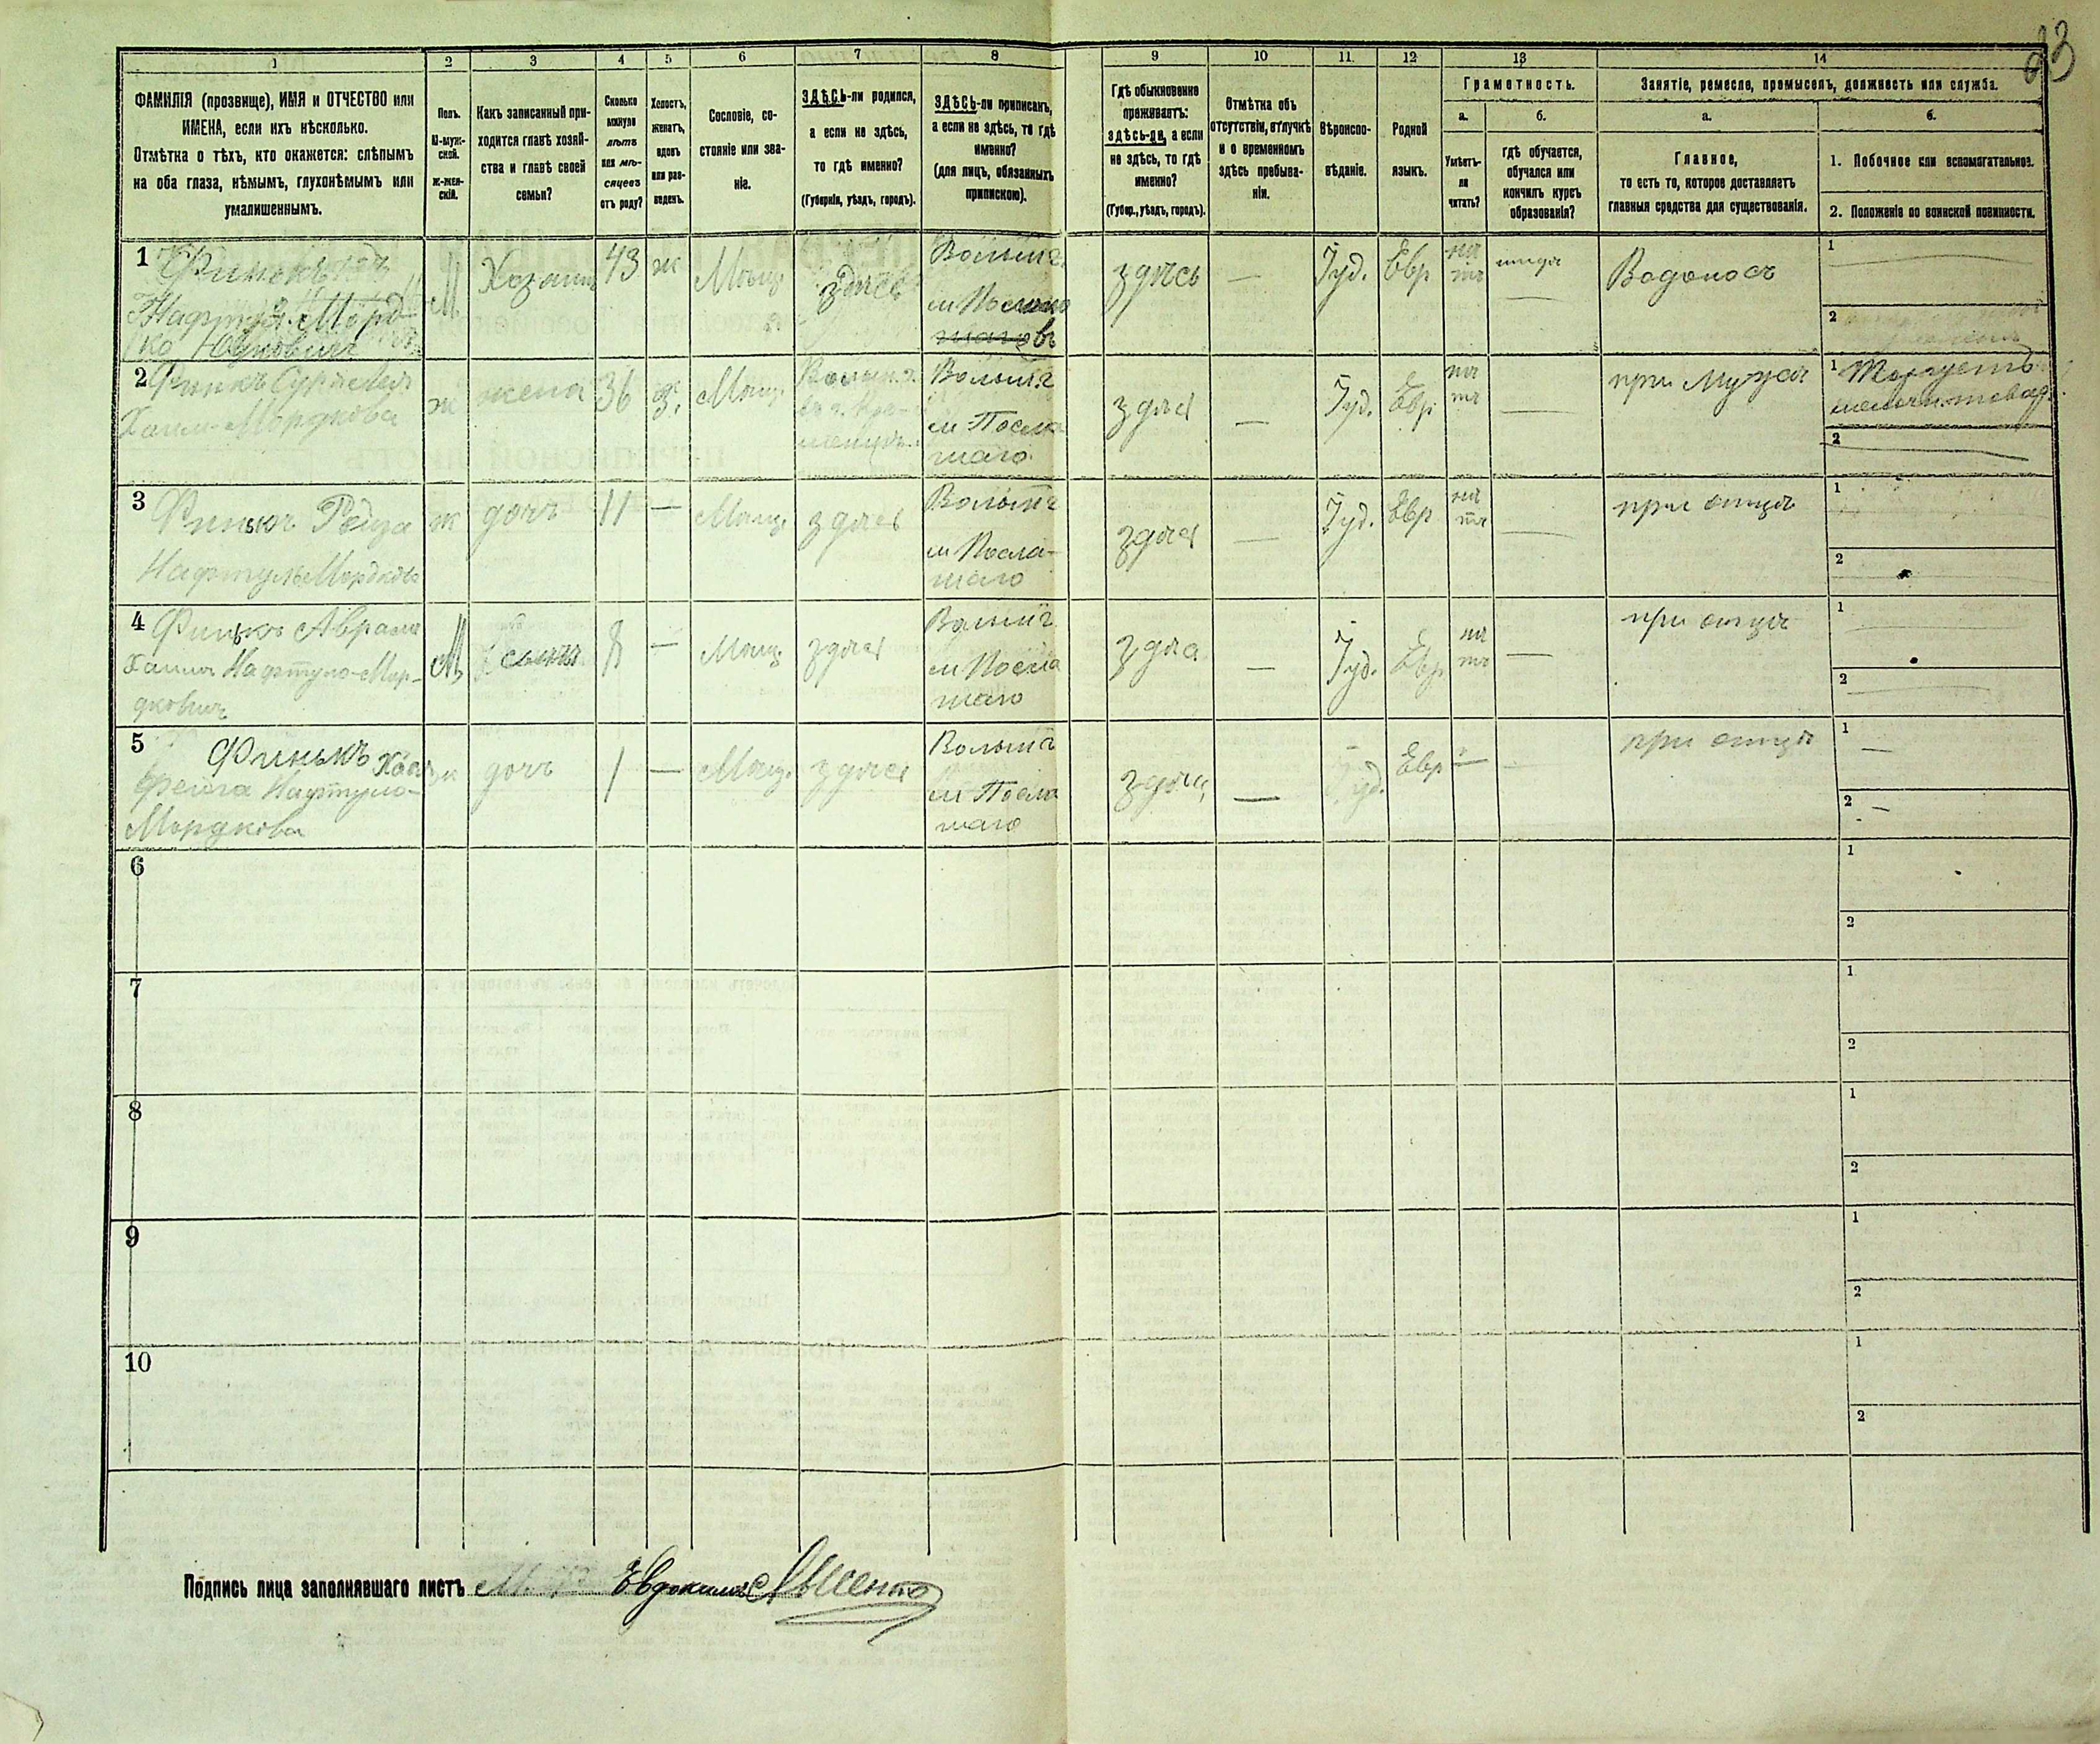 23
1
2
3
4
5
6
7
8
9
10
11.
12
13
14
ФАМИЛІЯ (прозвище), ИМЯ и ОТЧЕСТВО или
ИМЕНА, если ихъ нѣсколько.
Отмѣтка о тѣхъ, кто окажется: слѣпымъ
на оба глаза, нѣмымъ, глухонѣмымъ или
умалишеннымъ.
Полъ.
М-муж-
ской.
Ж-жен-
скій.
Какъ записанный при-
ходится главѣ хозяй-
ства и главѣ своей
семьи?
Сколько
минуло
лѣтъ
или мѣ-
сяцевъ
отъ роду?
Холостъ,
женатъ,
вдовъ
или раз-
веденъ.
Сословіе, со-
стояніе или зва-
ніе.
ЗДѢСЬ-ли родился,
а если не здѣсь,
то гдѣ именно?
(Губернія, уѣздъ, городъ).
ЗДѢСЬ-ли приписанъ,
а если не здѣсь, то гдѣ
именно?
(для лицъ, обязанныхъ
припискою).
Гдѣ обыкновенно
проживаетъ:
здѣсь-ли, а если
не здѣсь, то гдѣ
именно?
(Губер., уѣздъ, городъ).
Отмѣтка объ
отсутствіи, отлучкѣ
и о временномъ
здѣсь пребыва-
ніи.
Вѣроиспо-
вѣданіе.
Родной
языкъ.
Грамотность.
а.
Умѣетъ-
ли
читать?
б.
гдѣ обучается,
обучался или
кончилъ курсъ
образованія?
Занятіе, ремесло, промыселъ, должность или служба.
а.
Главное,
то есть то, которое доставляетъ
главныя средства для существованія.
б.
1. Побочное или вспомогательное.
2. Положеніе по воинской повинности.
1
Нафтул Морд-
ко
М
Хозяин
43
ж
Мѣщ.
здѣсь
Волынс.
здѣсь
—
Іуд.
Евр
нѣ
тъ
нигдѣ
Водоносъ
1
2
2 Финкъ Сура Лея
Хаим-Мордкова
ж
жена
36
з.
Мѣщ.
Волынс
здѣсь
—
Іуд.
Евр.
нѣ
тъ
—
при мужѣ
1 Торгуетъ
мелочн. товар.
2
3
Финькъ Рейза
Нафтул Мордков
ж
дочь
11
—
Мѣщ.
здѣсь
Волынс
здѣсь
—
Іуд.
Евр
нѣ
тъ
—
при отцѣ
1
2
4 Финькъ Аврам
Хаим Нафтуло-Мор-
дкович
М
сынъ
8
—
Мѣщ
здѣсь
Волынс
здѣс
—
Іуд.
Евр
нѣ
тъ
—
при отцѣ
1
2
5
Финькъ Хая
Фейга Нафтуло-
Мордкова
ж
дочь
1
—
Мѣщ.
здѣсь
Волынс
здѣсь
—
Іуд.
Евр
—
при отцѣ
1 —
2 —
6
1
2
7
1
2
8
1
2
9
1
2
10
1
2
Подпись лица заполнявшаго листъ Евдокимъ Лысенко